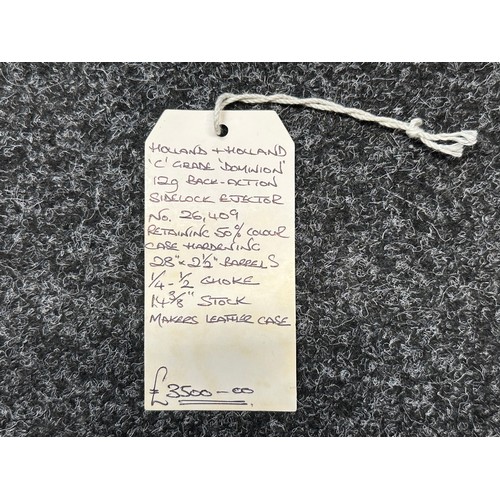 HOLLAND + HOLLAND
'C' GRADE 'DOMINION'
12g BACK-ACTION
SIDELOCK EJECTOR
No. 26,409
RETAINING 50% COLOUR
CASE HARDENING
28" x 2½" BARRELS
¼ - ½ CHOKE
14 3/8" STOCK
MAKERS LEATHER CASE
£3500-00